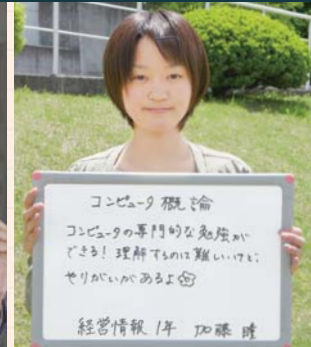 コンピュータ 概論
コンピュータの専門的な勉強が
できる! 理解するのは難しいけど、
やりがいがあるよ
経営情報 1年 加藤 瞳